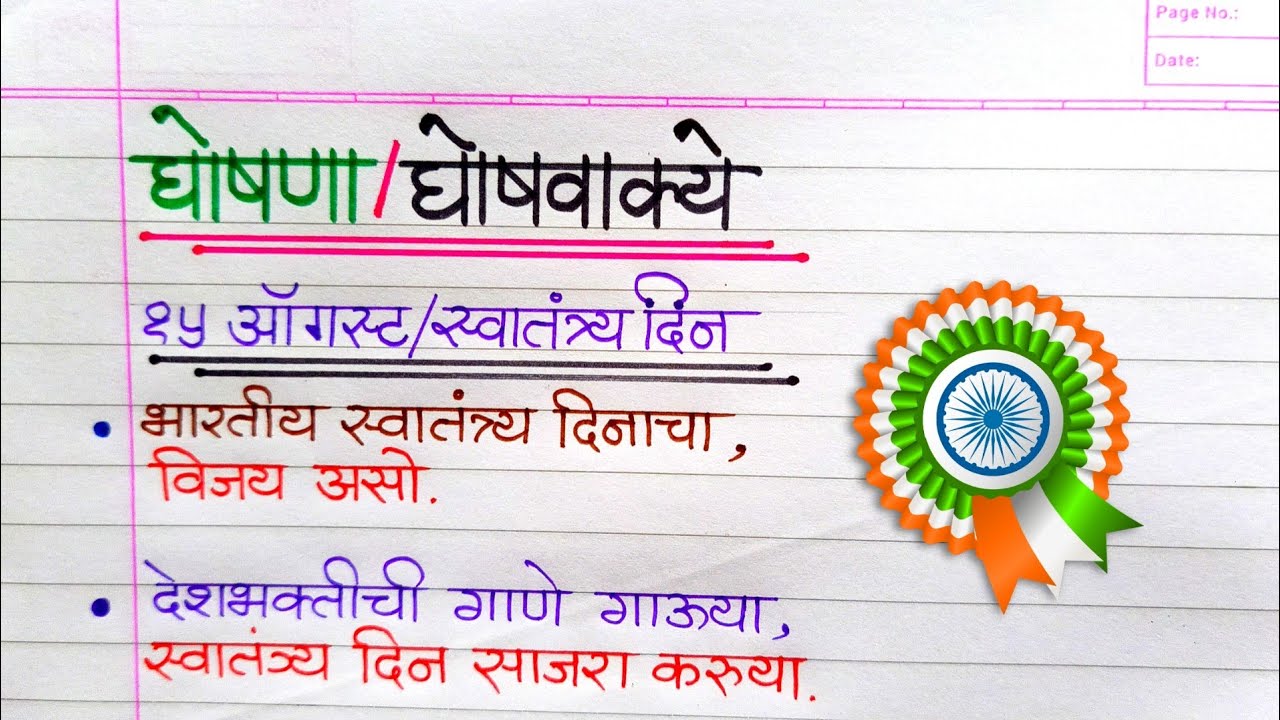 Page No.:
Date:
घोषणा/घोषवाक्ये
१५ ऑगस्ट/स्वातंत्र्य दिन
• भारतीय स्वातंत्र्य दिनाचा,
विजय असो.
• देशभक्तीची गाणे गाऊया,
स्वातंत्र्य दिन साजरा करुया.